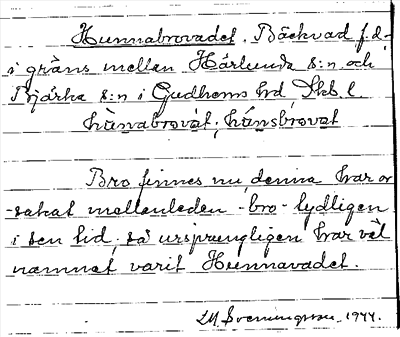 Hunnabrovadet. Bäckvad f.d.
i gräns mellan Härlunda s:n och
Bjärka s:n i Gudhems hd, Skb. l.
hùnabrovàt; hùnsbrovat
Bro finnes nu, denna har or-
-sakat mellanleden -bro- tydligen
i sen tid, så ursprungligen har väl
namnet varit Hunnavadet.
Sveningsson. 1944.